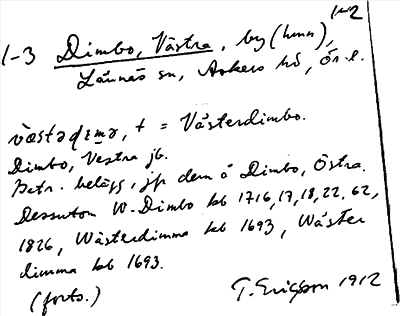 1-2
1-3 Dimbo, Västra, by (hmn),
Lännäs sn, Askers hd, Ör. l.
västədimə, t = Västerdimbo.
Dimbo, Vestra jb.
Betr. belägg, jfr dem å Dimbo, Östra.
Dessutom W. Dimbo kb 1716, 17, 18, 22, 62,
1826, Wästerdimma kb 1693, Wäster
dimma kb 1693.
(forts.) T. Ericsson 1912